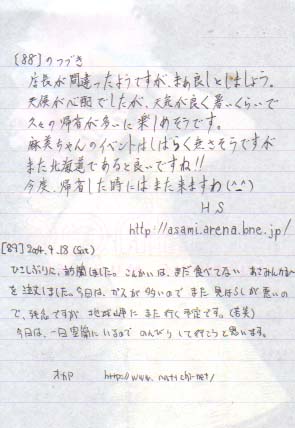 [88]のつづき
店長が間違ったようですが、まぁ良しとしましょう。
天候が心配でしたが、天気が良く暑いくらいで
久々の帰省が多いに楽しめそうです。
麻美ちゃんのイベントはしばらく無さそうですが
また北海道であると良いですね!!
今度、帰省した時にはまた来ますわ(^_^)
H S
http://asami.arena.bne.jp/
[89] 2004.9.18 (Sat)
ひさしぶりに、訪蘭しました。こんかいは、まだ食べてない あさみんカレー
を注文しました。今日は、ガスが多いので また 見はらしが悪いの
で、残念ですが 地球岬に また 行く予定です。(苦笑)
今日は、一日室蘭にいるので のんびり して行こうと思います。
オカP http://www.